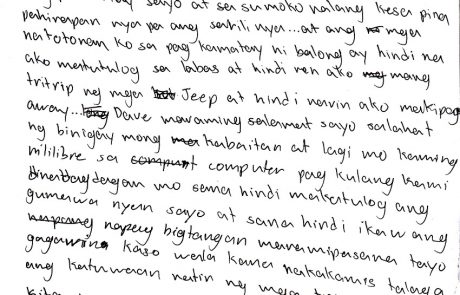 sayo at sa sumoko nalang kesa pina
pahirapan nya pa ang sarili nya...at ang mga
natotonan ko sa pag kamatay ni balong ay hindi na
ako matutulog sa labas at hindi ren ako mang
tritrip ng mga Jeep at hindi narin ako makipag
away... Dave maraming salamat sayo salahat
ng binigay mong kabaitan at lagi mo kaming
nililibre sa computer pag kulang kami
mo sana hindi makatulog ang
gumawa nyan sayo at sana hindi ikaw ang
napag bigtangan maramipasana tayo
gagawin kaso wala kana nakakamis talaga
ang katuwaan natin ng mga